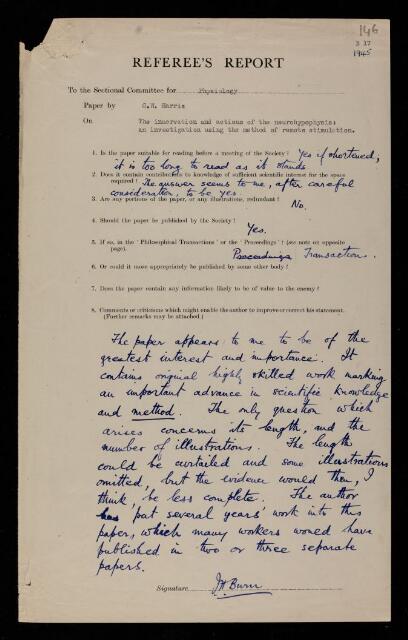 146
3 17
1945
REFEREE'S REPORT
To the Sectional Committee for Physiology
Paper by G.W. Harris
On The innervation and actions of the neurohypophysis:
an investigation using the method of remote stimulation.
1. Is the paper suitable for reading before a meeting of the Society? Yes if shortened;
it is too long to read as it stands
2. Does it contain contributions to knowledge of sufficient scientific interest for the space
required? The answer seems to me, after careful
consideration, to be yes.
3. Are any portions of the paper, or any illustrations, redundant? No.
4. Should the paper be published by the Society? Yes.
5. If so, in the 'Philosophical Transactions' or the 'Proceedings'? (see note on opposite
page). Proceedings Transactions.
6. Or could it more appropriately be published by some other body?
7. Does the paper contain any information likely to be of value to the enemy?
8. Comments or criticisms which might enable the author to improve or correct his statement.
(Further remarks may be attached.)
The paper appears to me to be of the
greatest interest and importance. It
contains original highly skilled work marking
an important advance in scientific knowledge
and method. The only question which
arises concerns its length, and the
number of illustrations. The length
could be curtailed and some illustrations
omitted, but the evidence would then, I
think, be less complete. The author
has put several years' work into this
paper, which many workers would have
published in two or three separate
papers.
Signature JH Burn